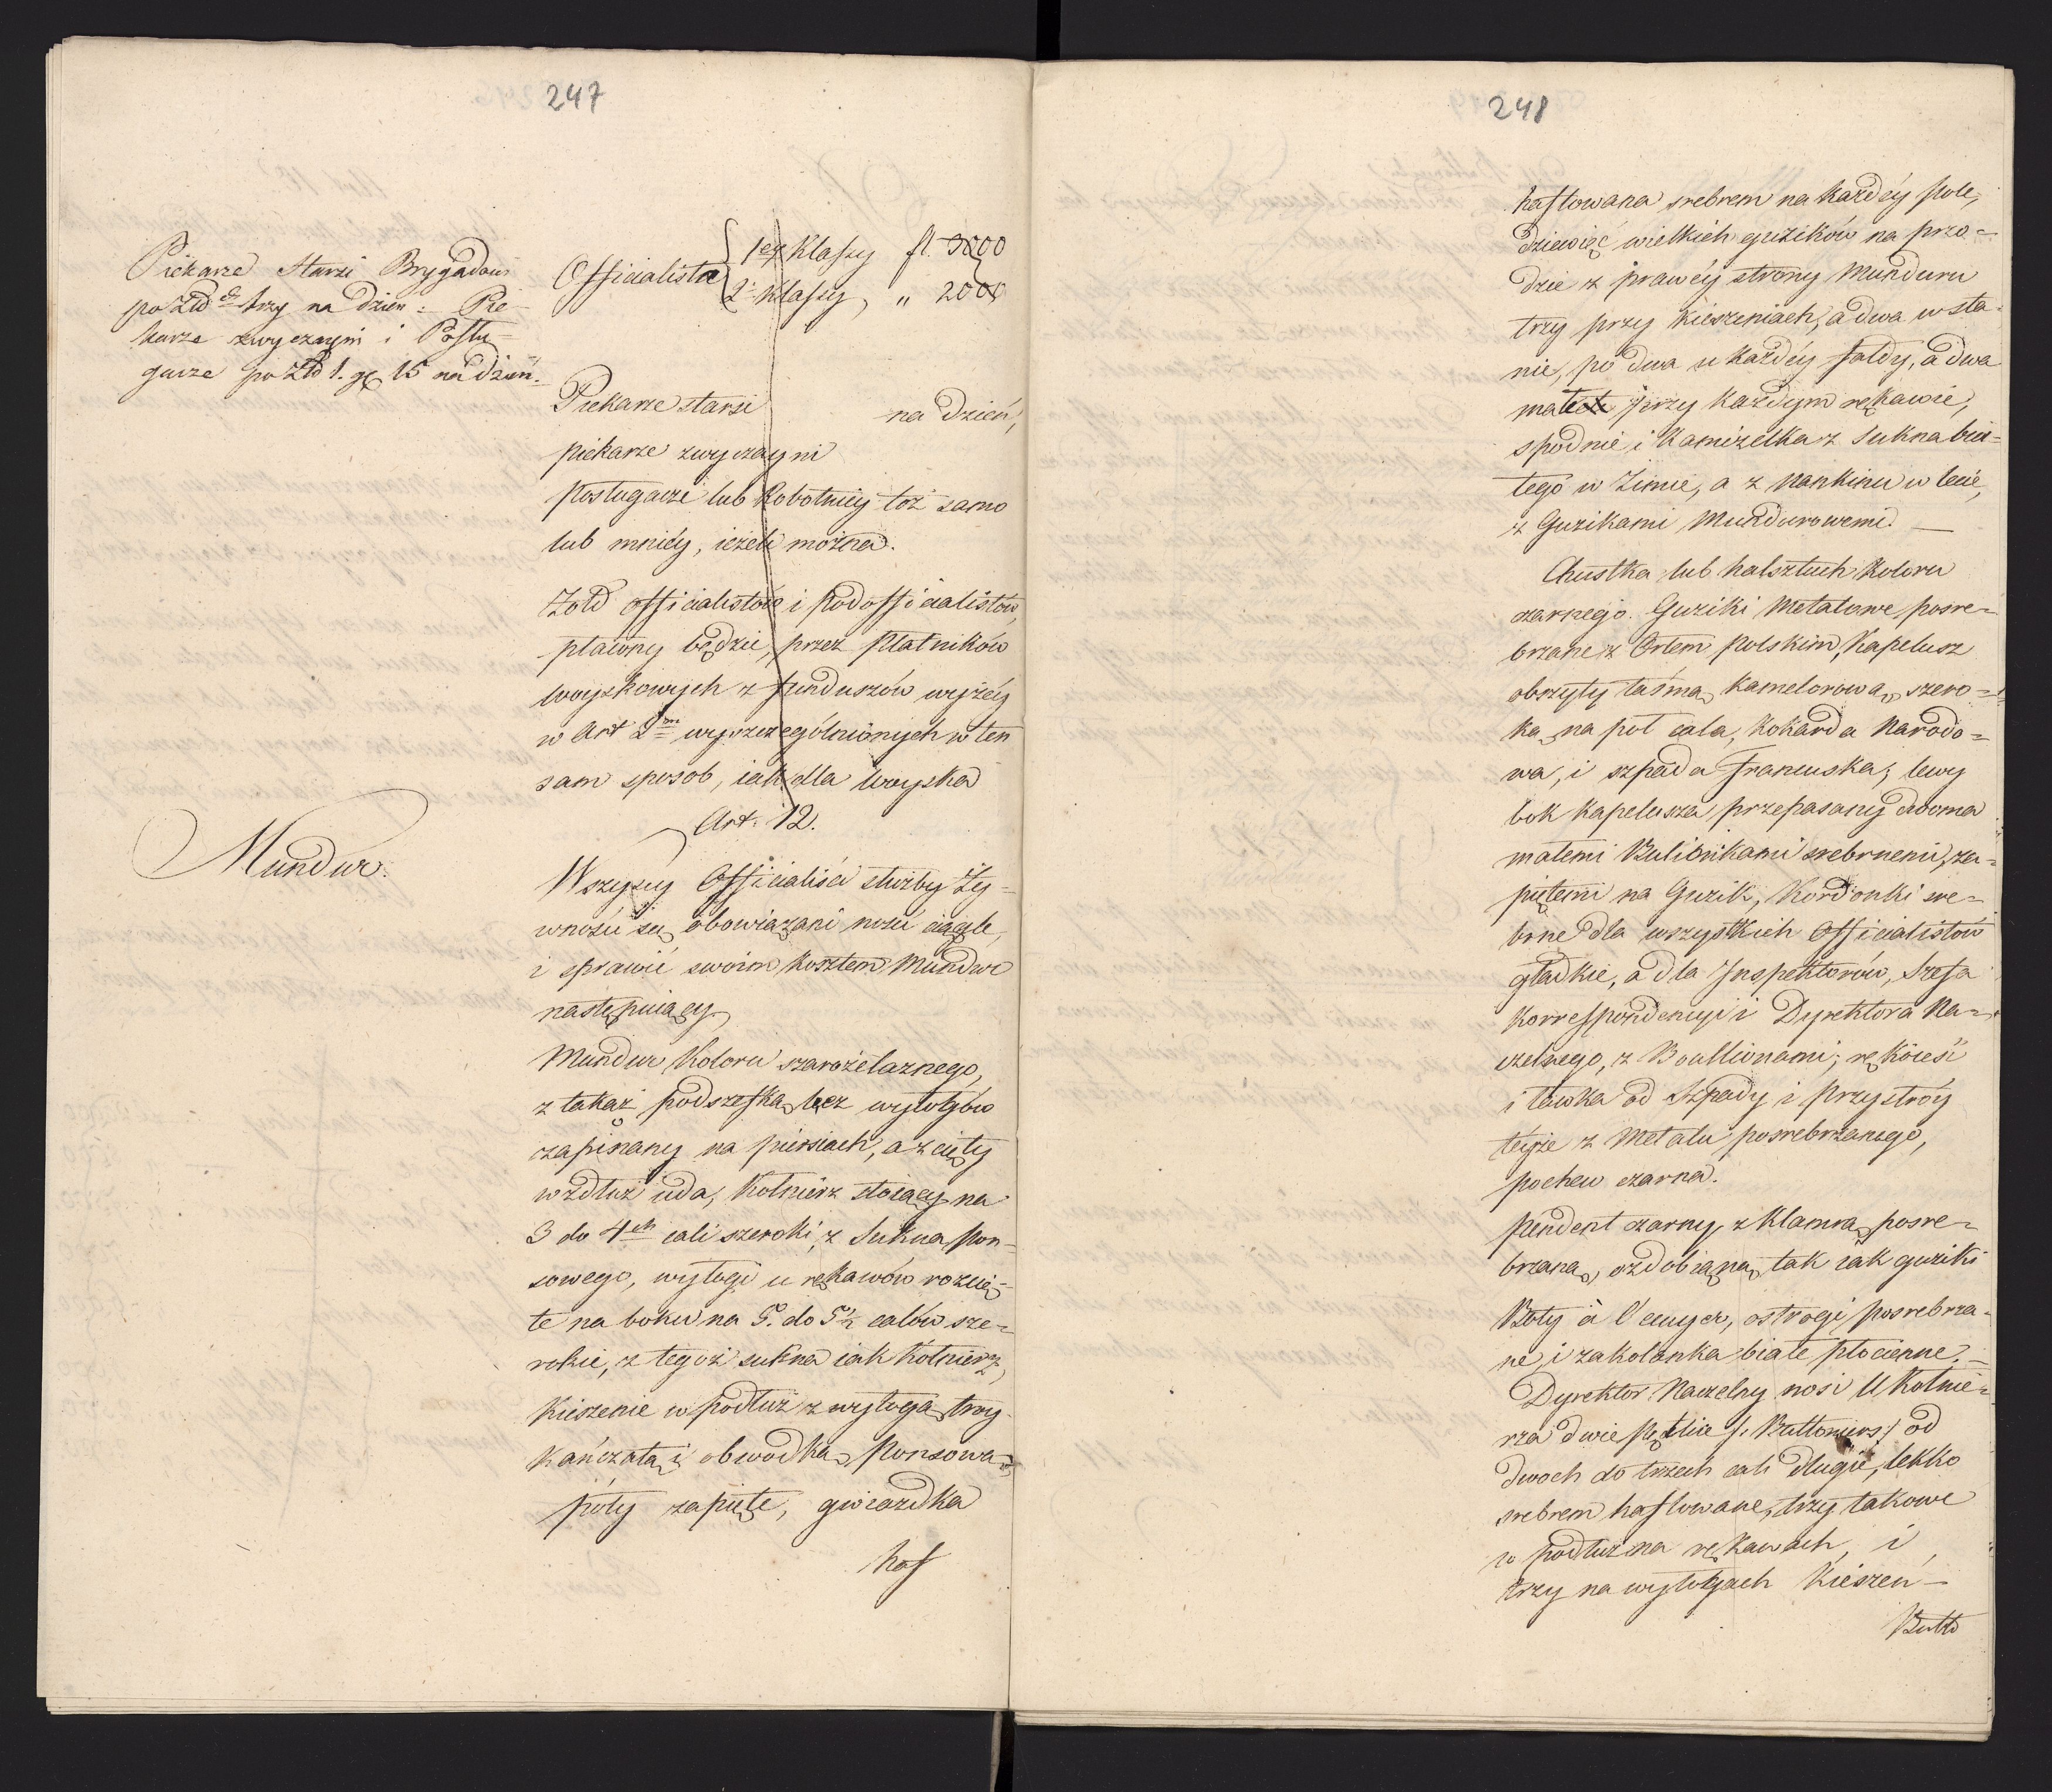 247
Piekarze Starsi Brygadowi
po Złd trzy na dzień. Pie-
karze zwyczayni i Posłu-
gacze po Złd 1. gr 15 na dzień.
Officialista 1ey Klassy fl. 3000
2 Klassy „ 2000
Piekarze starsi na dzień,
piekarze zwyczayni
Posługacze lub Robotnicy toż samo
lub mniéy, ieżeli można.
Żołd officialistów i podofficialistów,
płatony będzie, przez Płatników
woyskowych z funduszów wyżéy
w Art 2m wyszczególnionych w ten
sam sposob, iak dla Woyska
Art. 12.
Mundur.
Wszyscy Officialiści służby Ży-
wności są obowiązani nosić ciągle,
i sprawić swoim kosztem Mundur
następuiący
Mundur Koloru szarożelaznego,
z takąż podszefką bez wyłogów
zapinany na piersiach, a zcięty
wzdłuż uda, Kołnierz stoiący na
3 do 4ch cali szeroki, z Sukna pon-
sowego, wyłogi u rękawów rozcię-
te na boku na 5. do 5½ calów sze-
rokie, z tegoż sukna iak Kołnierz,
Kieszenie w podłuż z wyłogą troy-
kańczatą i obwodką Ponsową
poły zapięte, gwiazdka
haf
248
haftowana srebrem na każdéy pole,
dziewięć wielkich guzików na przo-
dzie z prawéy strony Munduru
trzy przy Kieszeniach, a dwa w sta-
nie, po dwa u każdéy fałdy, a dwa
małe przy każdym rękawie,
spodnie i Kamizelka z Sukna bia-
łego w Zimie, a z Nankinu w lecie,
z Guzikami Mundurowemi. —
Chustka lub halsztuch Koloru
czarnego. Guziki Metalowe posre-
brzane z Orłem polskim, Kapelusz
obszyty taśmą Kamelorową szero-
ką na poł cala, Kokarda Narodo-
wa, i szpada francuska; lewy
bok Kapelusza przepasany dwoma
małemi Bulionkami srebrnemi, za-
piętemi na Guzik, Kordonki sre-
brne dla wszystkich Officialistów
gładkie, a dla Inspektorów, Szefa
Korrespondencyi i Dyrektora Na-
czelnego, z Boullionami; rękoieść
i ławka od Szpady i przystróy
téyże z Metalu posrebrzanego,
pochew czarna.
Pendent czarny z Klamrą posre-
brzaną, ozdobianą tak iak guziki
Boty à l'ecuyer, ostrogi posrebrza-
ne, i zakolanka białe płocienne. —
Dyrektor Naczelny nosi U Kołnie-
rza dwie pętlice /: Buttoniers:/ od
dwoch do trzech cali długie, lekko
srebrem haftowane, trzy takowe
w podłuż na rękawach, i
trzy na wyłogach Kieszeń —
Butto